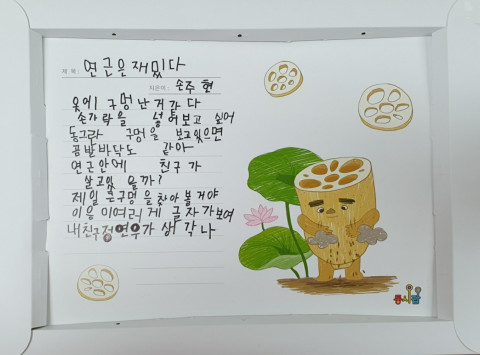 제 목: 연근은재밌다
지은이: 손주현
옷에 구멍난거같다
손가락을 넣어보고 싶어
동그란 구멍을 보고있으면
곰발바닥도 같아
연근안에 친구가
살고있을까?
제일 큰구멍을찾아볼거야
이응 이여러개 글자가보여
내친구정연우가 생각나